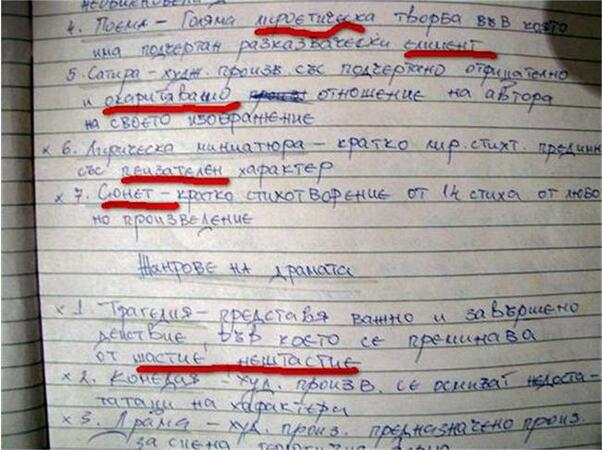 4. Поема - Голяма лироетическа творба във която
има подчертан разказвачески елимент
5. Сатира - худж. произв. със подчертано отрицателно
и окаритавашо отношение на автора
на своето изобряжение
х 6. Лирическа миниатюра - кратко лир. стихт. предимн
със пеизателен характер
х 7. Сюнет - кратко стихотворение от 14 стиха от любо
но произведение
Жанрове на драмата
х 1. Трагедия - представя важно и завършено
действие, във което се преминава
от шастие нештастие
х 2. Комедия - худ. произв. се осмиват недоста-
татаци на характера
х 3. Драма - худ. произ. предназначено произ.
за сцена